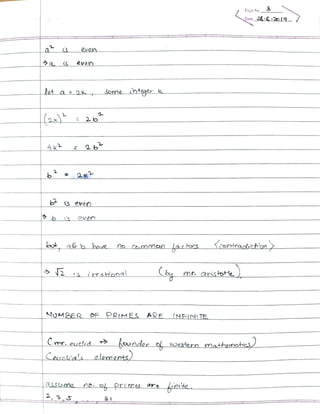 Page No. 3
Date 28.6.2019
a² is even
⇒ a is even
let a = 2k, some integer k
(2k)² = 2b²
4k² = 2b²
b² = 2k²
b² is even
⇒ b is even
but, a & b have no common factors <contradiction>
⇒ √2 is irrational (by mr. aristotle)
NUMBER OF PRIMES ARE INFINITE
(mr. euclid ⇒ founder of western mathematics)
(euclid's elements)
assume no. of primes are finite.
2, 3, 5